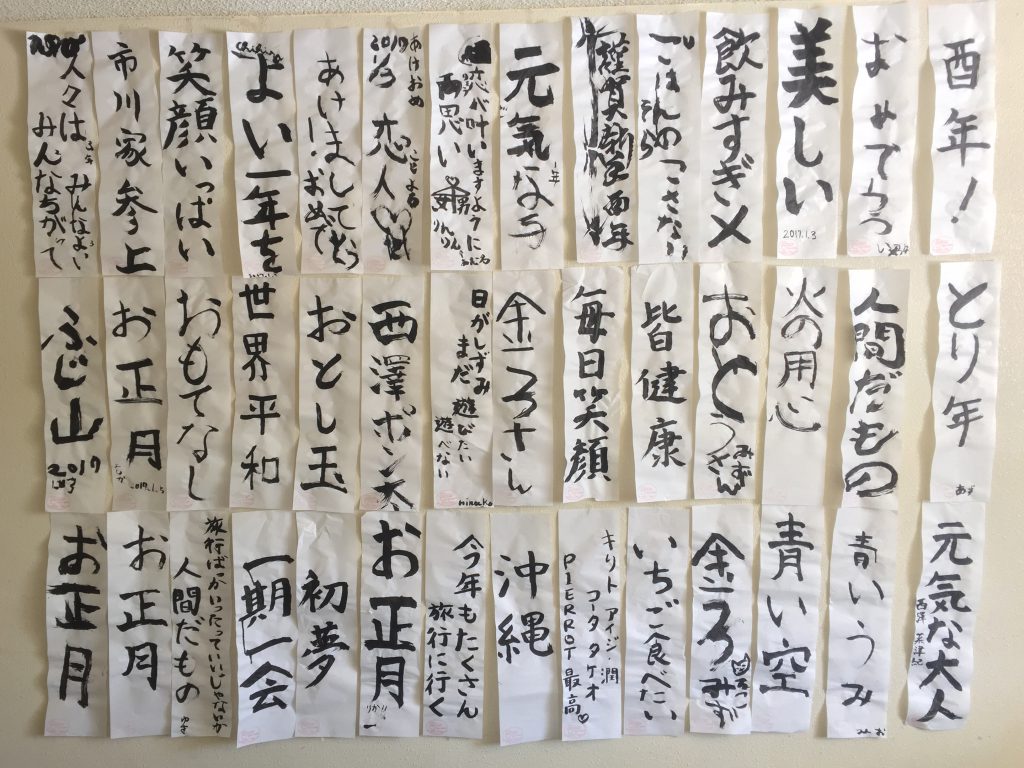 酉年！
おめでとう
美しい
2017.1.3
飲みすぎメ
ごはんのつさない
謹賀新年
酉年
元気な子
一年
恋が叶いますように
両思い
りんりん
あけおめ
ことよろ
2017
1/3
恋人
あけましてぞう
おめで
よい一年を
笑顔いっぱい
市川家参上
人々はみんなよい
みんなちがって
とり年
あず
人間だもの
火の用心
おとうさん
みずき
皆健康
毎日笑顔
金ころさん
日がしずみ
まだ遊びたい
遊べない
hiroko
西澤ポン太
おとし玉
世界平和
おもてなし
お正月
2017.1.5
ふじ山
2017
元気な大人
青いうみ
みお
青い空
金ころ
みずき
いちご食べたい
キリト アイジ・潤
コータ タケオ
PIERROT 最高♡
沖縄
今年もたくさん
旅行に行く
お正月
りか
初夢
一期一会
旅行ばかいったっていいじゃないか
人間だもの
ゆき
お正月
お正月